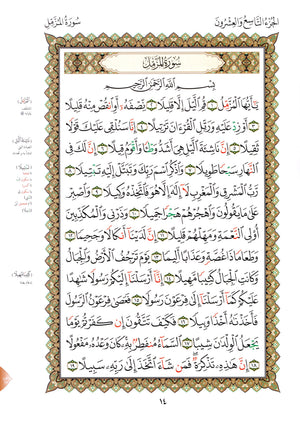 الجزء التاسع والعشرون
سورة المزمل
سورة المزمل
بسم الله الرحمن الرحيم
يَٰٓأَيُّهَا ٱلْمُزَّمِّلُ ١ قُمِ ٱلَّيْلَ إِلَّا قَلِيلًا ٢ نِّصْفَهُۥٓ أَوِ ٱنقُصْ مِنْهُ قَلِيلًا
٣ أَوْ زِدْ عَلَيْهِ وَرَتِّلِ ٱلْقُرْءَانَ تَرْتِيلًا ٤ إِنَّا سَنُلْقِى عَلَيْكَ قَوْلًا
ثَقِيلًا ٥ إِنَّ نَاشِئَةَ ٱلَّيْلِ هِىَ أَشَدُّ وَطْـًٔا وَأَقْوَمُ قِيلًا ٦ إِنَّ لَكَ فِى
ٱلنَّهَارِ سَبْحًا طَوِيلًا ٧ وَٱذْكُرِ ٱسْمَ رَبِّكَ وَتَبَتَّلْ إِلَيْهِ تَبْتِيلًا ٨
رَّبُّ ٱلْمَشْرِقِ وَٱلْمَغْرِبِ لَآ إِلَٰهَ إِلَّا هُوَ فَٱتَّخِذْهُ وَكِيلًا ٩ وَٱصْبِرْ
عَلَىٰ مَا يَقُولُونَ وَٱهْجُرْهُمْ هَجْرًا جَمِيلًا ١٠ وَذَرْنِى وَٱلْمُكَذِّبِينَ
أُو۟لِى ٱلنَّعْمَةِ وَمَهِّلْهُمْ قَلِيلًا ١١ إِنَّ لَدَيْنَآ أَنكَالًا وَجَحِيمًا ١٢
وَطَعَامًا ذَا غُصَّةٍ وَعَذَابًا أَلِيمًا ١٣ يَوْمَ تَرْجُفُ ٱلْأَرْضُ وَٱلْجِبَالُ
وَكَانَتِ ٱلْجِبَالُ كَثِيبًا مَّهِيلًا ١٤ إِنَّآ أَرْسَلْنَآ إِلَيْكُمْ رَسُولًا شَٰهِدًا
عَلَيْكُمْ كَمَآ أَرْسَلْنَآ إِلَىٰ فِرْعَوْنَ رَسُولًا ١٥ فَعَصَىٰ فِرْعَوْنُ ٱلرَّسُولَ
فَأَخَذْنَٰهُ أَخْذًا وَبِيلًا ١٦ فَكَيْفَ تَتَّقُونَ إِن كَفَرْتُمْ يَوْمًا
يَجْعَلُ ٱلْوِلْدَٰنَ شِيبًا ١٧ ٱلسَّمَآءُ مُنفَطِرٌۢ بِهِۦ كَانَ وَعْدُهُۥ مَفْعُولًا
١٨ إِنَّ هَٰذِهِۦ تَذْكِرَةٌ فَمَن شَآءَ ٱتَّخَذَ إِلَىٰ رَبِّهِۦ سَبِيلًا ١٩
١٤